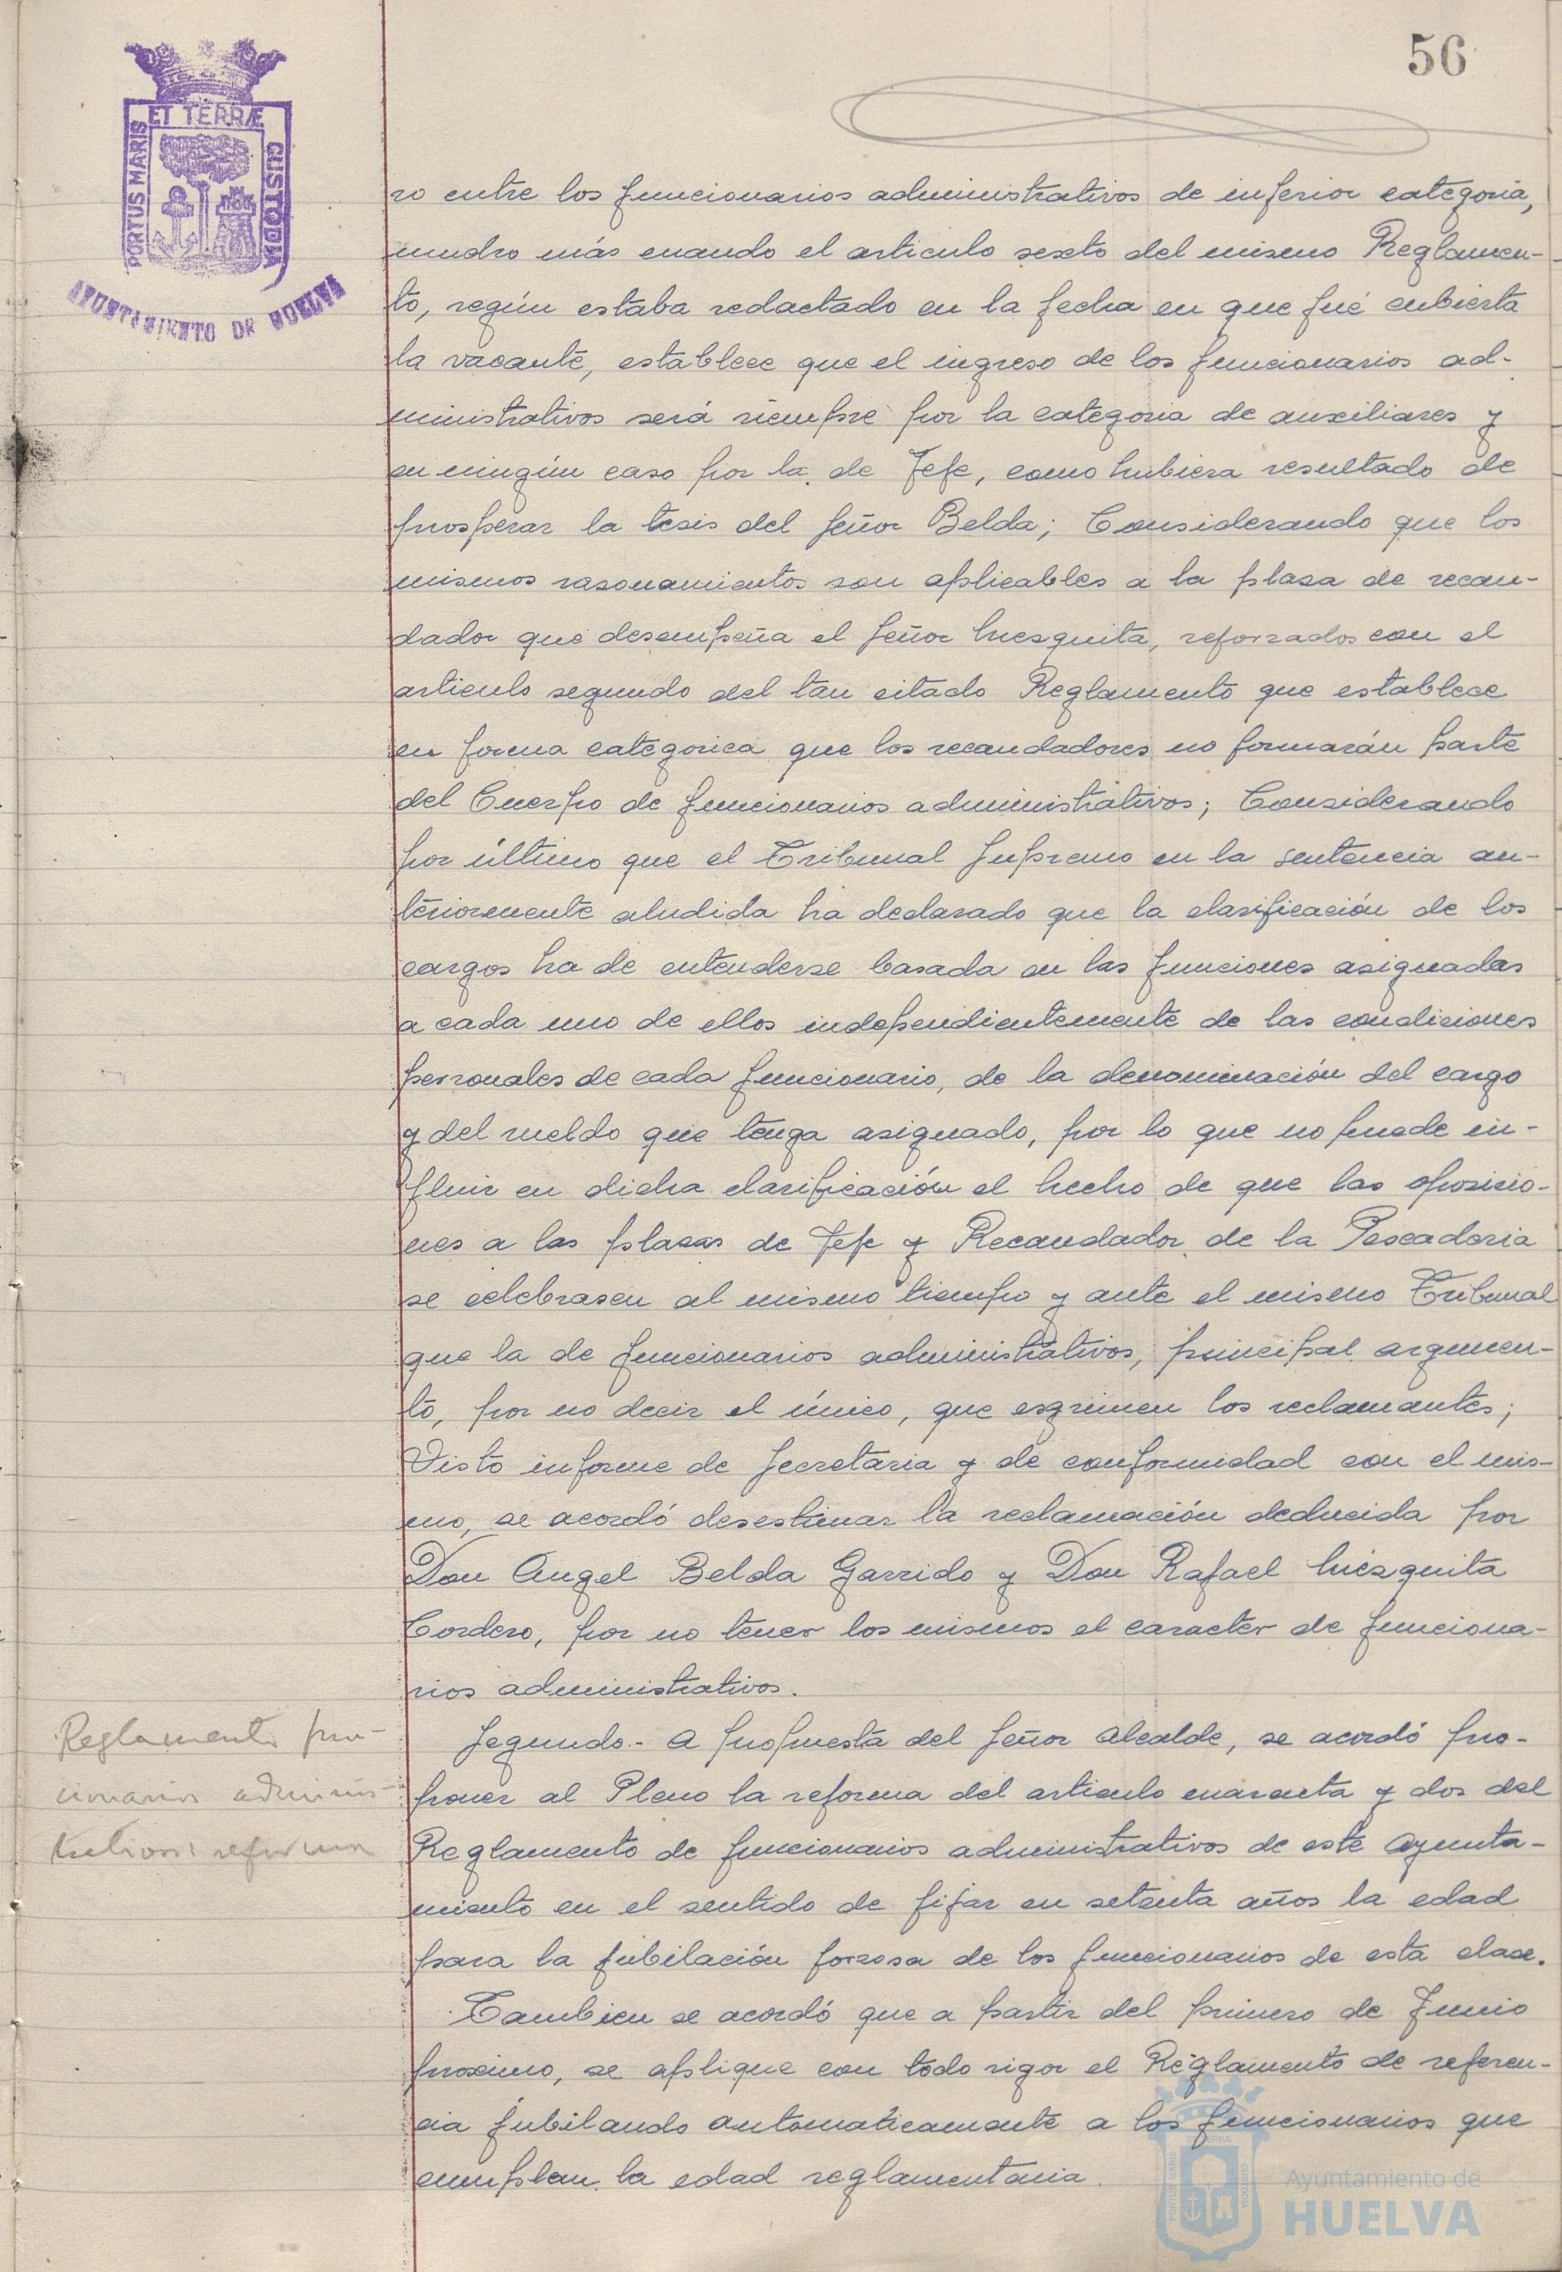 56
ET TERRÆ
PORTUS MARIS
CUSTODIA
AYUNTAMIENTO DE HUELVA
ro entre los funcionarios administrativos de inferior categoria,
mucho más cuando el articulo sexto del mismo Reglamen-
to, según estaba redactado en la fecha en que fué cubierta
la vacante, establece que el ingreso de los funcionarios ad-
ministrativos será siempre por la categoria de auxiliares y
en ningún caso por la de Jefe, como hubiera resultado de
prosperar la tesis del Señor Belda; Considerando que los
mismos rasonamientos son aplicables a la plasa de recau-
dador que desempeña el Señor Mesquita, reforzados con el
articulo segundo del tan citado Reglamento que establece
en forma categorica que los recaudadores no formarán parte
del Cuerpo de funcionarios administrativos; Considerando
por último que el Tribunal Supremo en la sentencia an-
teriormente aludida ha declarado que la clasificación de los
cargos ha de entenderse basada en las funciones asignadas
a cada uno de ellos independientemente de las condiciones
personales de cada funcionario, de la denominación del cargo
y del sueldo que tenga asignado, por lo que no puede in-
fluir en dicha clasificación el hecho de que las oposicio-
nes a las plasas de Jefe y Recaudador de la Pescaderia
se celebrasen al mismo tiempo y ante el mismo Tribunal
que la de funcionarios administrativos, principal argumen-
to, por no decir el único, que esgrimen los reclamantes;
Visto informe de Secretaria y de conformidad con el mis-
mo, se acordó desestimar la reclamación deducida por
Don Angel Belda Garrido y Don Rafael Mezquita
Cordero, por no tener los mismos el caracter de funciona-
rios administrativos.
Reglamento fun-
cionarios adminis-
trativos: reforma
Segundo.- A propuesta del Señor Alcalde, se acordó pro-
poner al Pleno la reforma del articulo cuarenta y dos del
Reglamento de funcionarios administrativos de este Ayunta-
miento en el sentido de fijar en setenta años la edad
para la jubilación forzosa de los funcionarios de esta clase.
Tambien se acordó que a partir del primero de Junio
proximo, se aplique con todo rigor el Reglamento de referen-
cia jubilando automaticamente a los funcionarios que
cumplan la edad reglamentaria.
Ayuntamiento de
HUELVA